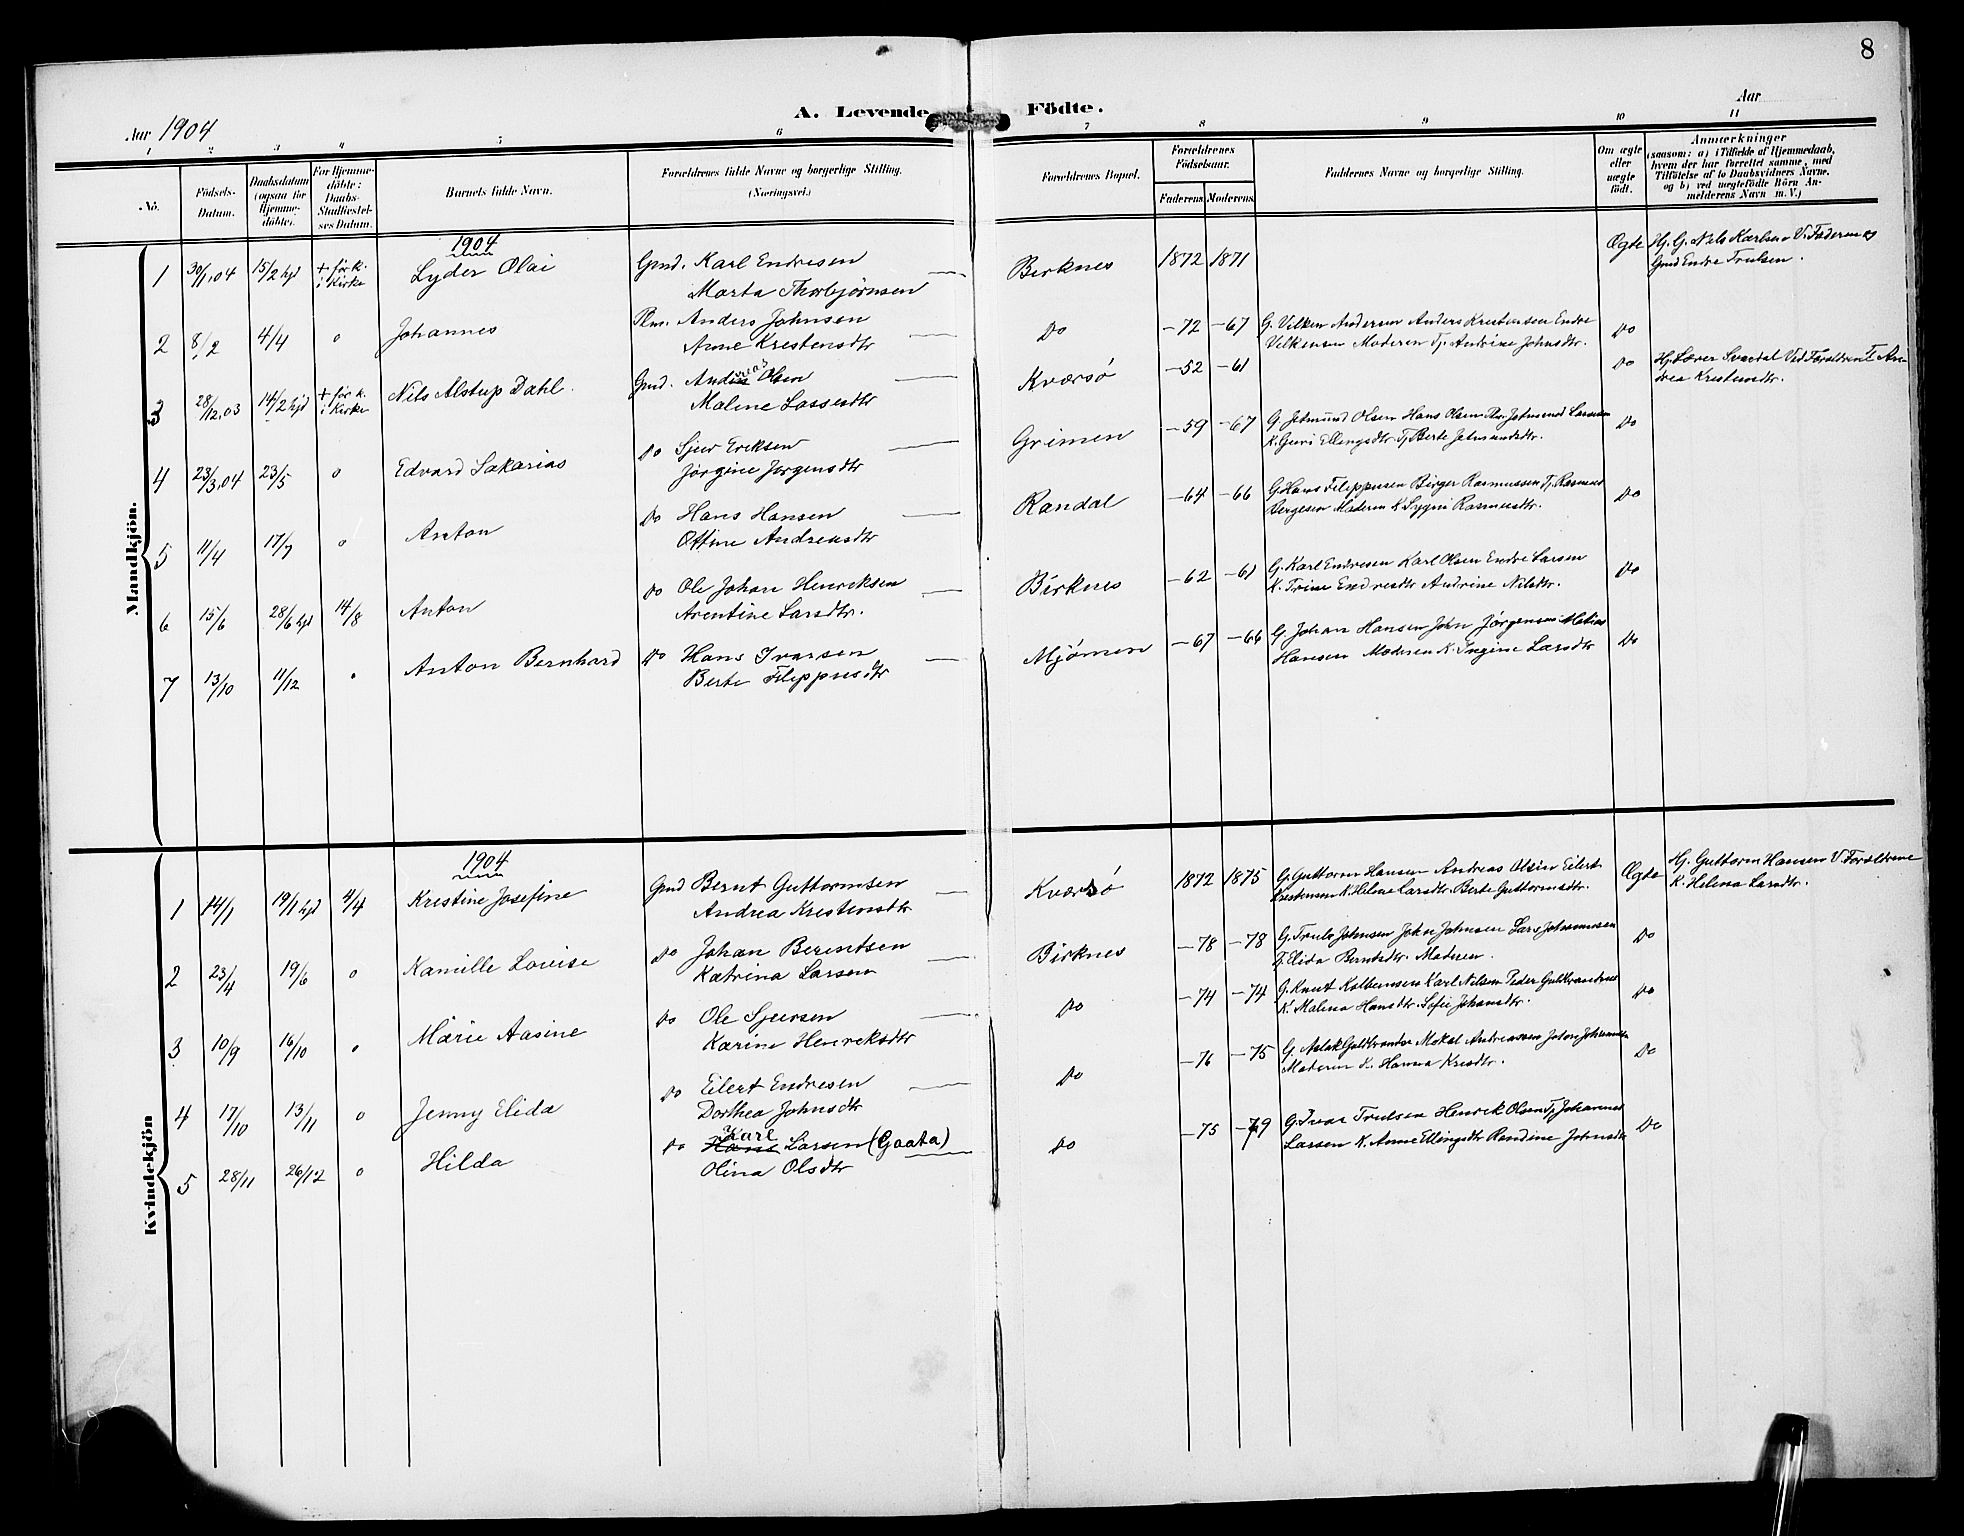 8
A. Levende Födte.
Aar 1904
Aar
1 2 3 4 5 6 7 8 9 10 11
No.
Födsels-Datum.
Daabsdatum (ogsaa for Hjemmedöbte).
For Hjemmedöbte: Daabs-Stadfæstelses Datum.
Barnets fulde Navn.
Forældrenes fulde Navne og borgerlige Stilling.
(Næringsvei.)
Forældrenes Bopæl.
Forældrenes Födselsaar.
Faderens Moderens
Faddernes Navne og borgerlige Stilling.
Om ægte eller uægte födt.
Anmærkninger
(saasom: a) i Tilfælde af Hjemmedaab, hvem der har forrettet samme, med Tilföielse af to Daabsvidners Navne, og b) ved uægtefödte Börn Anmelderens Navn m. V.)
Mandkjön.
1904
1 30/1.04 15/2 hjd + før k. i Kirke Lyder Olai Gmd. Karl Endresen Birknes 1872 1871 Ægte Hj. G. Nils Karlsen V. Faderen og
Marta Thorbjørnsen Gmd Endre Trulsen.
2 8/2 4/4 o Johannes Plm. Anders Johnsen Do -72 -67 G. Vilken Andersen Anders Kristensen Endre Do
Anne Krestensdtr Vilkensen Moderen Tj. Andrine Johnsdtr.
3 28/12.03 14/2 hjd + før k. i Kirke Nils Alstrup Dahl. Gmd. Andreas Olsen Kværsø -52 -61 Do Hj. Lærer Svardal Ved Forældrene T. An-
Maline Lassesdtr drea Krestensdtr.
4 23/3.04 23/5 o Edvard Sakarias Do Sjur Eriksen Grimen -59 -67 G. Jetmund Olsen Hans Olsen Jetmund Larsen Do
Jørgine Jørgensdtr K. Guri Ellingsdtr Tj Berte Jetmundsdtr.
5 11/4 17/7 o Anton Do Hans Hansen Randal -64 -66 G. Hans Filippusen Birger Rasmussen Tj. Rasmus Do
Ottine Andreasdtr Bergesen Moderen K Sygni Rasmusdtr.
6 15/6 28/6 hjd 14/8 Anton Do Ole Johan Henriksen Birknes -62 -61 G. Karl Endresen Karl Olsen Endre Larsen Do
Arentine Larsdtr. K. Trine Endresdtr Andrine Nilsdtr.
7 13/10 11/12 o Anton Bernhard Do Hans Ivarsen Mjømen -67 -66 G. Johan Hansen John Jørgensen Matias Do
Berte Filippusdtr Hansen Moderen K. Ingine Larsdtr
Kvindekjön
1904
1 14/1 19/1 hjd 4/4 Kristine Josefine Gmd Bernt Guttormsen Kværsø 1872 1875 G. Guttorm Hansen Andreas Olsen Eilert Ægte Hj. Guttorm Hansen V. Forældrene
Andrea Krestensdtr Krestensen K. Helene Larsdtr. Berte Guttormsdtr. K. Helena Larsdtr.
2 23/4 19/6 o Kamille Lovise Do Johan Berentsen Birknes -78 -78 G. Truls Johnsen John Johnsen Lars Johannesen Do
Katrina Larsen T. Elida Berntsdtr. Moderen.
3 10/9 16/10 o Marie Aasine Do Ole Sjursen Do -74 -74 G. Knut Kolbensen Karl Nilsen Peder Guldbrandsen Do
Karine Henriksdtr K. Malena Hansdtr. Sofie Johansdtr.
4 17/10 13/11 o Jenny Elida Do Eilert Endresen Do -76 -75 G. Aslak Guldbrandsen Mokal Andreassen Johan Johannesen Do
Dorthea Johnsdtr Moderen K. Hanna Kresdtr.
5 28/11 26/12 o Hilda Do Hans Karl Larsen (Gaata) Do -75 -79 G. Ivar Trulsen Henrik Olsen Tj. Johannes Do
Olina Olsdtr Larsen K. Anne Ellingsdtr Randine Johnsdtr